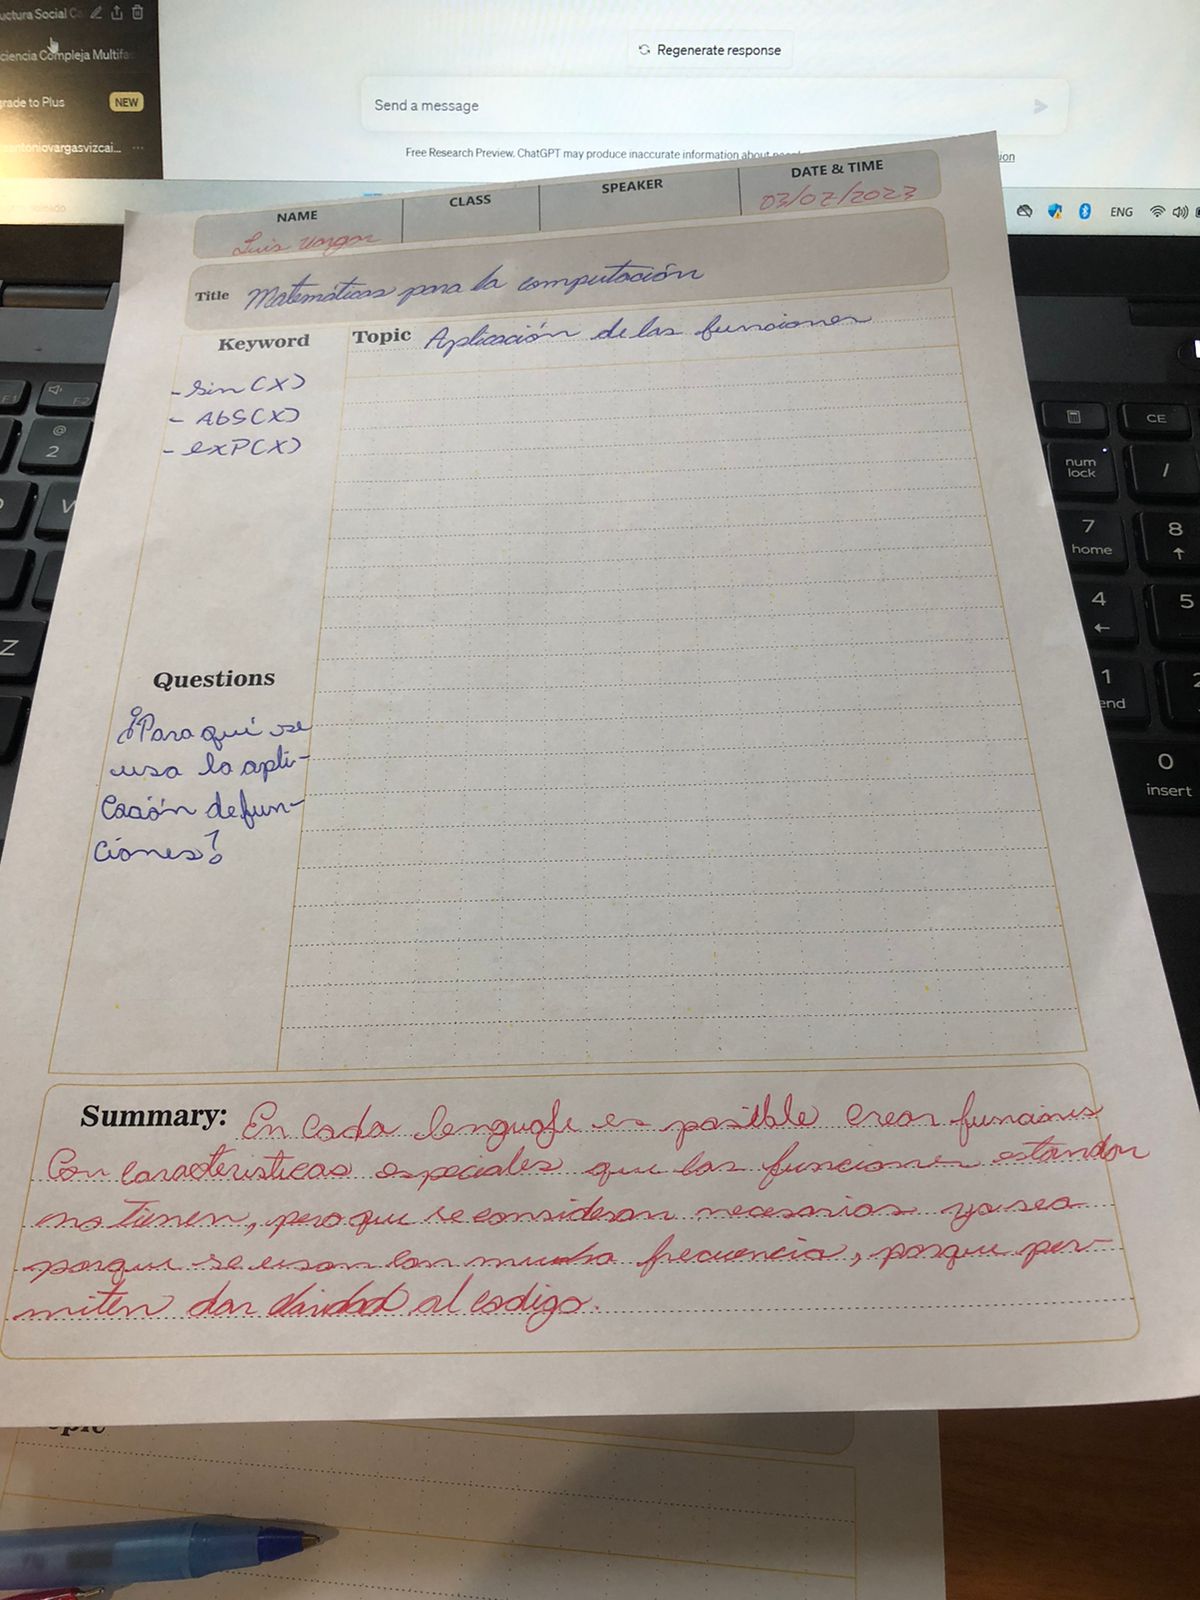 uctura Social Ca
ciencia Compleja Multifa
grade to Plus NEW
antoniovargasvizcai... ...
Regenerate response
Send a message
Free Research Preview. ChatGPT may produce inaccurate information about
ion
ENG
NAME CLASS SPEAKER DATE & TIME
Luis Vargas 03/07/2023
Title Matemáticas para la computación
Keyword Topic Aplicación de las funciones
- Sin(X)
- AbS(X)
- exP(X)
Questions
¿Para qué se
usa la apli-
cación de fun-
ciones?
Summary: En cada lenguaje es posible crear funciones
Con caracteristicas especiales que las funciones estandar
no tienen, pero que se consideran necesarias ya sea
porque se usan con mucha frecuencia, porque per-
miten dar claridad al codigo.
F1
F2
@
2
W
Z
CE
num
lock
/
7
home
8
4
5
1
end
2
0
insert
opic